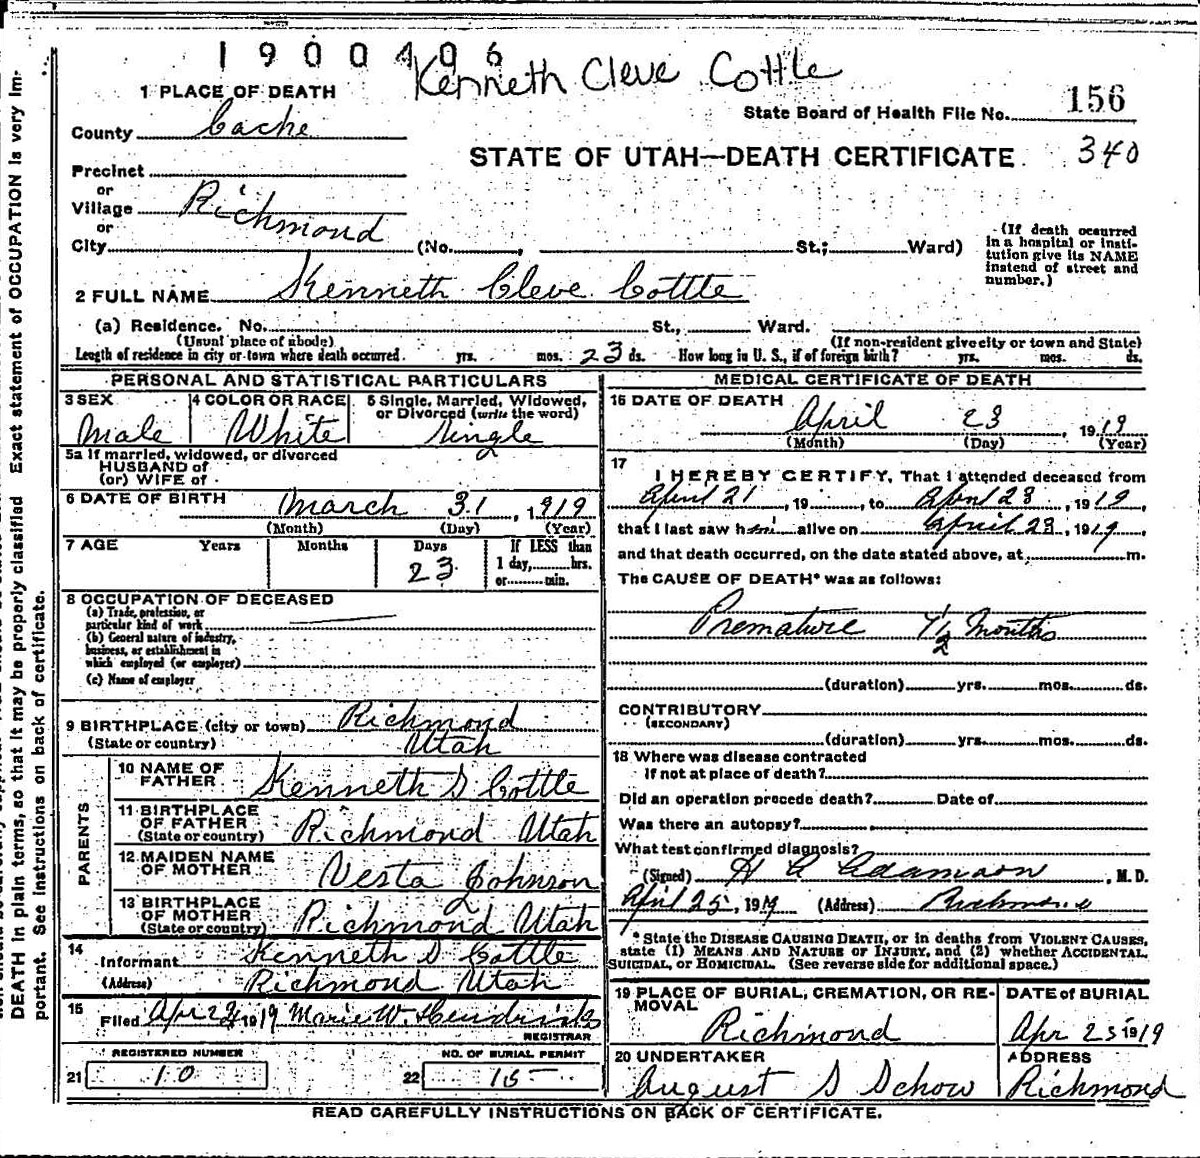 1900406
Kenneth Cleve Cottle
1 PLACE OF DEATH
State Board of Health File No. 156
County Cache
STATE OF UTAH—DEATH CERTIFICATE. 340
Precinct
or
Village Richmond
or
City (No. , St.; Ward)
(If death occurred in a hospital or institution give its NAME instead of street and number.)
2 FULL NAME Kenneth Cleve Cottle
(a) Residence. No. St., Ward.
(Usual place of abode) (If non-resident give city or town and State)
Length of residence in city or town where death occurred. yrs. mos. 23 ds. How long in U. S., if of foreign birth? yrs. mos. ds.
PERSONAL AND STATISTICAL PARTICULARS
3 SEX 4 COLOR OR RACE 5 Single, Married, Widowed, or Divorced (write the word)
Male White Single
5a If married, widowed, or divorced
HUSBAND of
(or) WIFE of
6 DATE OF BIRTH March 31, 1919
(Month) (Day) (Year)
7 AGE Years Months Days If LESS than
23 1 day, hrs.
or min.
8 OCCUPATION OF DECEASED
(a) Trade, profession, or
particular kind of work
(b) General nature of industry,
business, or establishment in
which employed (or employer)
(c) Name of employer
9 BIRTHPLACE (city or town) Richmond
(State or country) Utah
PARENTS
10 NAME OF FATHER Kenneth S Cottle
11 BIRTHPLACE OF FATHER (State or country) Richmond Utah
12 MAIDEN NAME OF MOTHER Vesta Johnson
13 BIRTHPLACE OF MOTHER (State or country) Richmond Utah
14 Informant Kenneth S Cottle
(Address) Richmond Utah
15 Filed Apr 23 1919 Marie W. Hendricks
REGISTRAR
REGISTERED NUMBER NO. OF BURIAL PERMIT
21 10 22 15
MEDICAL CERTIFICATE OF DEATH
16 DATE OF DEATH
April 23, 1919
(Month) (Day) (Year)
17 I HEREBY CERTIFY, That I attended deceased from
April 21, 19 , to April 23, 1919
that I last saw him alive on April 23, 1919
and that death occurred, on the date stated above, at m.
The CAUSE OF DEATH* was as follows:
Premature 1/2 months
(duration) yrs. mos. ds.
CONTRIBUTORY
(SECONDARY)
(duration) yrs. mos. ds.
18 Where was disease contracted
if not at place of death?
Did an operation precede death? Date of
Was there an autopsy?
What test confirmed diagnosis?
(Signed) H C Adamson, M. D.
April 25, 1919 (Address) Richmond
* State the DISEASE CAUSING DEATH, or in deaths from VIOLENT CAUSES,
state (1) MEANS AND NATURE OF INJURY, and (2) whether ACCIDENTAL,
SUICIDAL, or HOMICIDAL. (See reverse side for additional space.)
19 PLACE OF BURIAL, CREMATION, OR REMOVAL DATE of BURIAL
Richmond Apr 25 1919
20 UNDERTAKER ADDRESS
August S Schow Richmond
READ CAREFULLY INSTRUCTIONS ON BACK OF CERTIFICATE.
DEATH in plain terms, so that it may be properly classified Exact statement of OCCUPATION is very Im-
portant. See instructions on back of certificate.